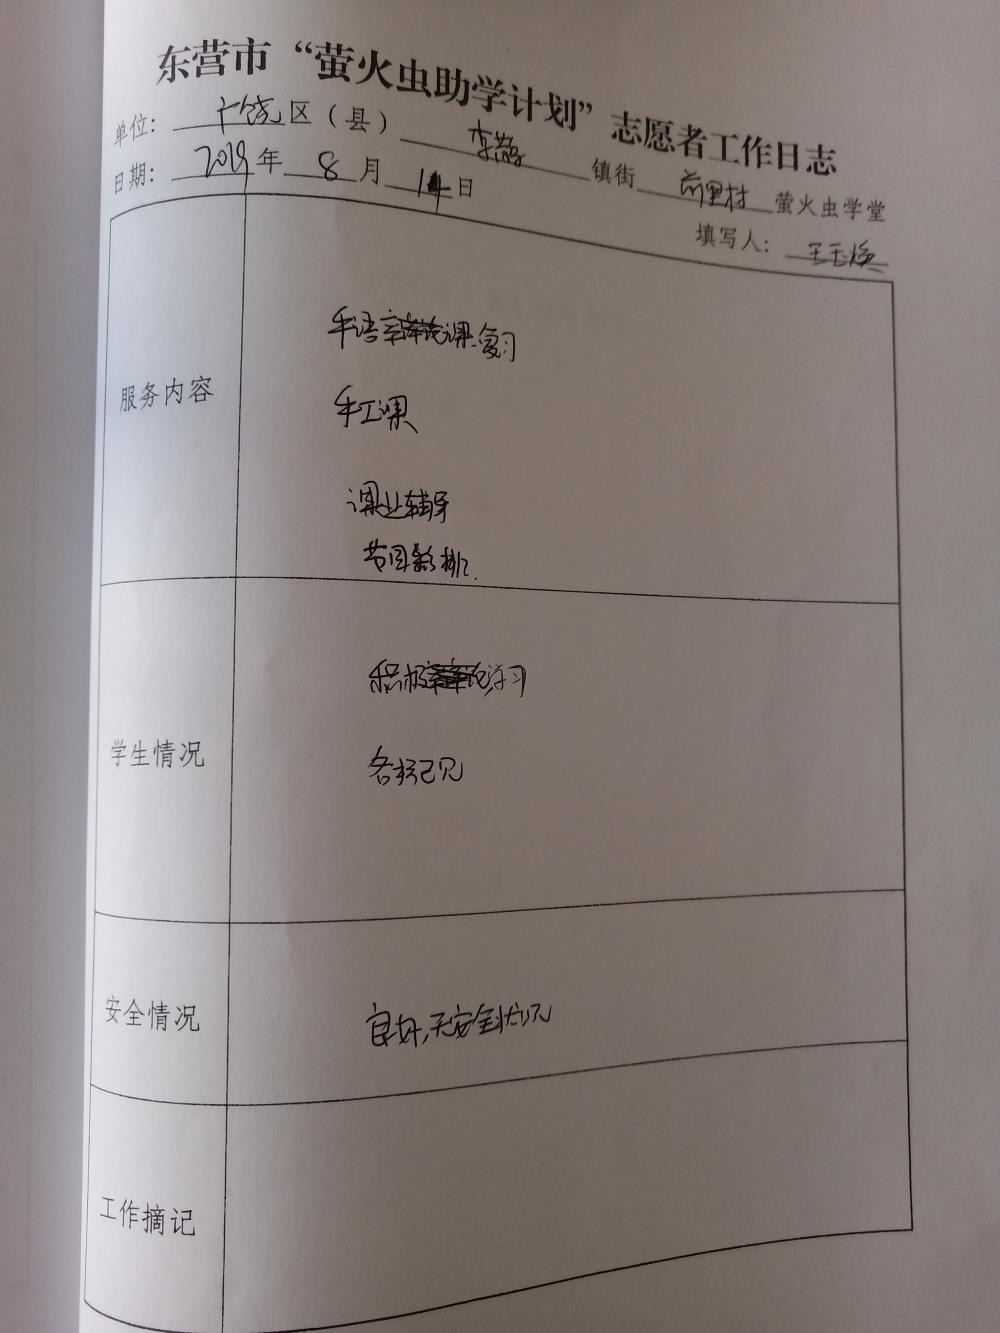 东营市“萤火虫助学计划”志愿者工作日志
单位: 广饶区（县） 李鹊镇街 前里村萤火虫学堂
日期: 2019年8月14日 填写人:
服务内容
手语课复习
手工课
课业辅导
节目彩排.
学生情况
积极练习
各抒己见
安全情况
良好,无安全状况
工作摘记